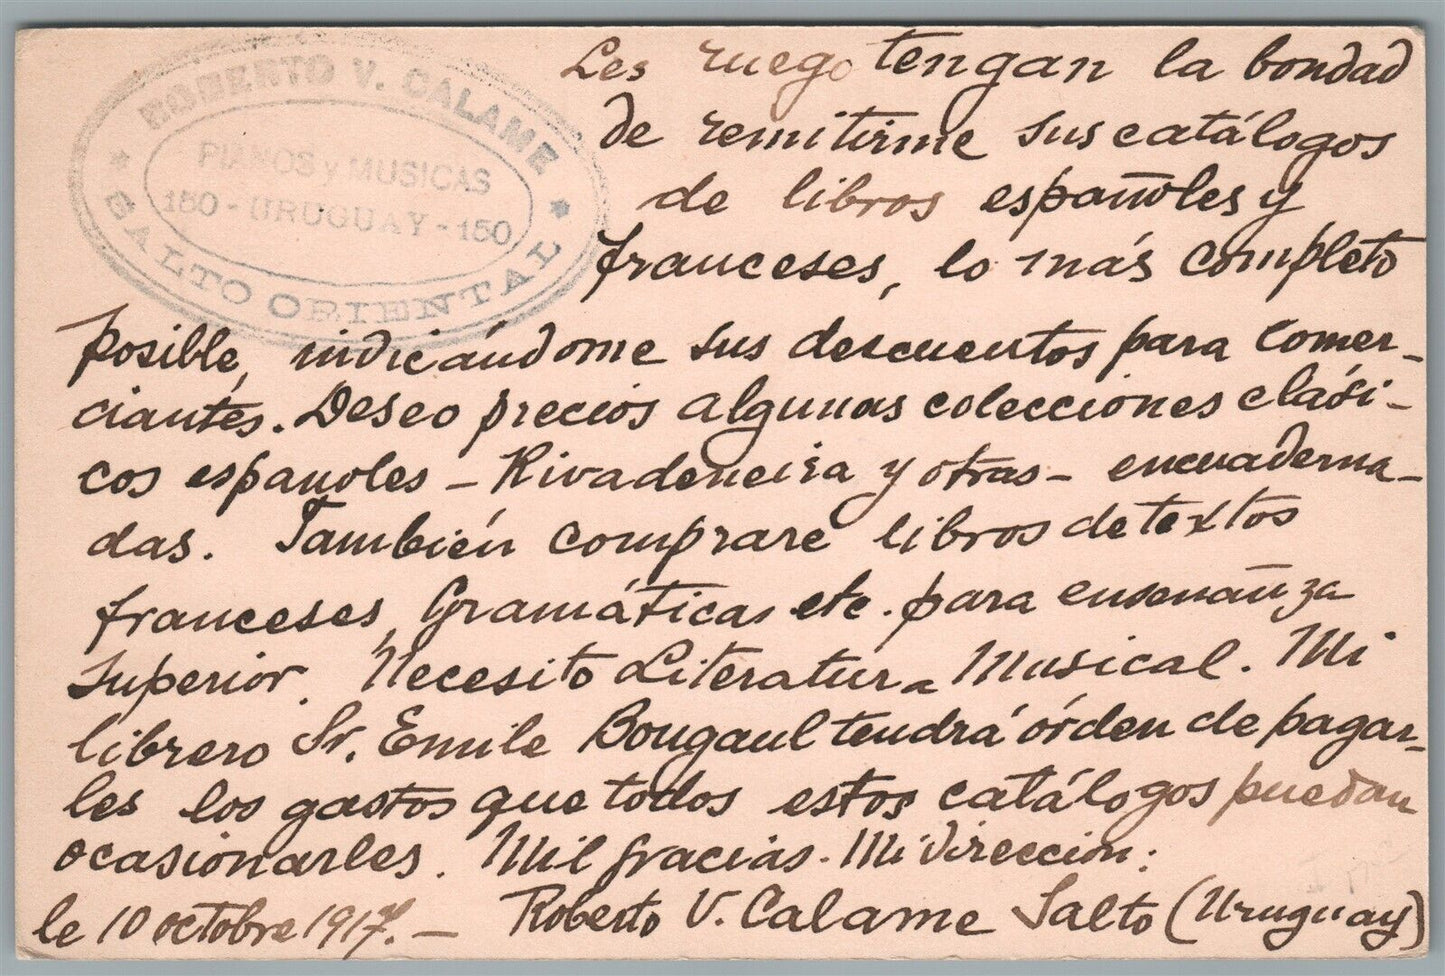 ROBERTO V. CALAME
PIANOS y MUSICAS
150 - URUGUAY - 150
SALTO ORIENTAL
Les ruego tengan la bondad
de remitirme sus catálogos
de libros españoles y
franceses, lo más completo
posible, indicándome sus descuentos para comer-
ciantes. Deseo precios algunas colecciones clási-
cos españoles - Rivadeneira y otras - encuaderna-
das. También comprare libros de textos
franceses, Gramáticas etc. para enseñanza
superior. Necesito Literatura Musical. Mi
librero Sr. Emile Bougault tendrá órden de pagar-
les los gastos que todos estos catálogos puedan
ocasionarles. Mil gracias. Mi direccion:
le 10 octobre 1917. - Roberto V. Calame Salto (Uruguay)